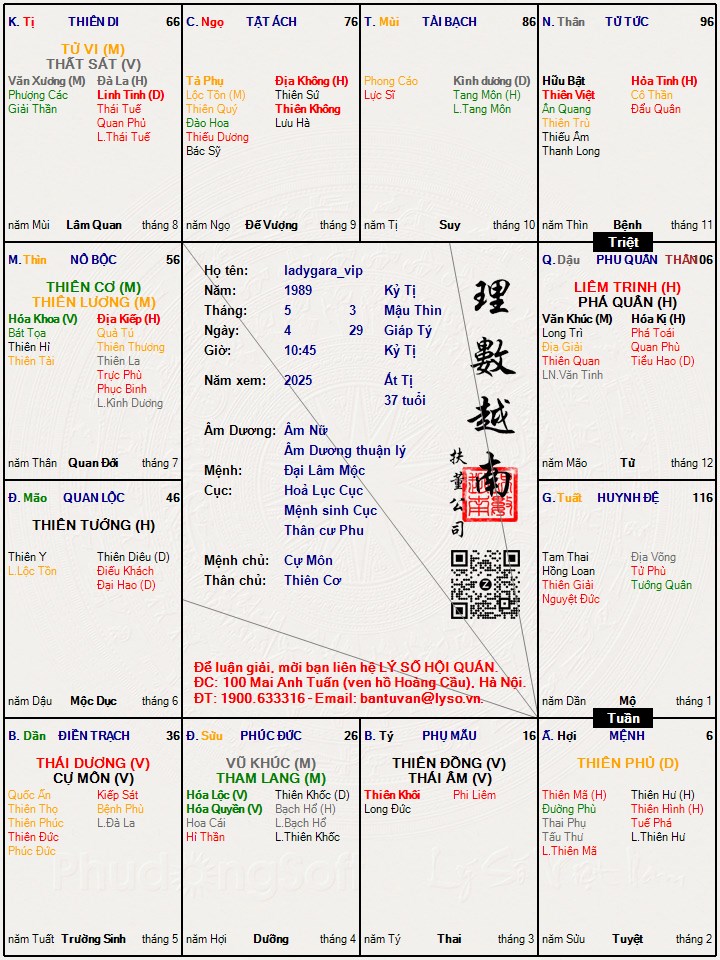 K. Tị THIÊN DI 66
TỬ VI (M)
THẤT SÁT (V)
Văn Xương (M) Đà La (H)
Phượng Các Linh Tinh (D)
Giải Thần Thái Tuế
Quan Phủ
L.Thái Tuế
năm Mùi Lâm Quan tháng 8
C. Ngọ TẬT ÁCH 76
Tả Phụ Địa Không (H)
Lộc Tồn (M) Thiên Sứ
Thiên Quý Thiên Không
Đào Hoa Lưu Hà
Thiếu Dương
Bác Sỹ
năm Ngọ Đế Vượng tháng 9
T. Mùi TÀI BẠCH 86
Phong Cáo Kình dương (D)
Lực Sĩ Tang Môn (H)
L.Tang Môn
năm Tị Suy tháng 10
N. Thân TỬ TỨC 96
Hữu Bật Hỏa Tinh (H)
Thiên Việt Cô Thần
Ân Quang Đẩu Quân
Thiên Trù
Thiếu Âm
Thanh Long
năm Thìn Bệnh tháng 11
Triệt
M. Thìn NÔ BỘC 56
THIÊN CƠ (M)
THIÊN LƯƠNG (M)
Hóa Khoa (V) Địa Kiếp (H)
Bát Tọa Quả Tú
Thiên Hỉ Thiên Thương
Thiên Tài Thiên La
Trực Phù
Phục Binh
L.Kình Dương
năm Thân Quan Đới tháng 7
Họ tên: ladygara_vip
Năm: 1989 Kỷ Tị
Tháng: 5 3 Mậu Thìn
Ngày: 4 29 Giáp Tý
Giờ: 10:45 Kỷ Tị
Năm xem: 2025 Ất Tị
37 tuổi
Âm Dương: Âm Nữ
Âm Dương thuận lý
Mệnh: Đại Lâm Mộc
Cục: Hoả Lục Cục
Mệnh sinh Cục
Thân cư Phu
Mệnh chủ: Cự Môn
Thân chủ: Thiên Cơ
理數越南
扶董公司
Để luận giải, mời bạn liên hệ LÝ SỐ HỘI QUÁN.
ĐC: 100 Mai Anh Tuấn (ven hồ Hoàng Cầu), Hà Nội.
ĐT: 1900.633316 - Email: bantuvan@lyso.vn.
Q. Dậu PHU QUÂN THÂN 106
LIÊM TRINH (H)
PHÁ QUÂN (H)
Văn Khúc (M) Hóa Kị (H)
Long Trì Phá Toái
Địa Giải Quan Phù
Thiên Quan Tiểu Hao (D)
LN.Văn Tinh
năm Mão Tử tháng 12
Đ. Mão QUAN LỘC 46
THIÊN TƯỚNG (H)
Thiên Y Thiên Diêu (D)
L.Lộc Tồn Điếu Khách
Đại Hao (D)
năm Dậu Mộc Dục tháng 6
G. Tuất HUYNH ĐỆ 116
Tam Thai Địa Võng
Hồng Loan Tử Phù
Thiên Giải Tướng Quân
Nguyệt Đức
năm Dần Mộ tháng 1
Tuần
B. Dần ĐIỀN TRẠCH 36
THÁI DƯƠNG (V)
CỰ MÔN (V)
Quốc Ấn Kiếp Sát
Thiên Thọ Bệnh Phù
Thiên Phúc L.Đà La
Thiên Đức
Phúc Đức
năm Tuất Trường Sinh tháng 5
Đ. Sửu PHÚC ĐỨC 26
VŨ KHÚC (M)
THAM LANG (M)
Hóa Lộc (V) Thiên Khốc (D)
Hóa Quyền (V) Bạch Hổ (H)
Hoa Cái L.Bạch Hổ
Hỉ Thần L.Thiên Khốc
năm Hợi Dưỡng tháng 4
B. Tý PHỤ MẪU 16
THIÊN ĐỒNG (V)
THÁI ÂM (V)
Thiên Khôi Phi Liêm
Long Đức
năm Tý Thai tháng 3
Ấ. Hợi MỆNH 6
THIÊN PHỦ (D)
Thiên Mã (H) Thiên Hư (H)
Đường Phù Thiên Hình (H)
Thai Phụ Tuế Phá
Tấu Thư L.Thiên Hư
L.Thiên Mã
năm Sửu Tuyệt tháng 2